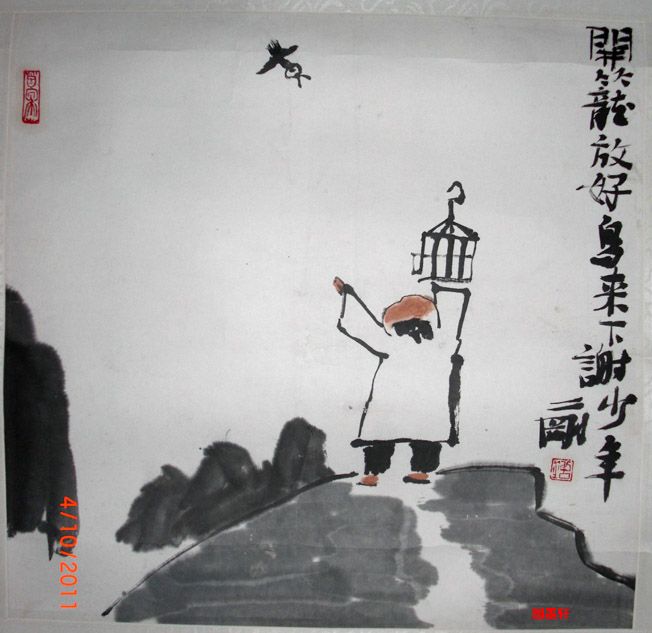 開籠放好鳥来下謝少年
二剛
4/10/2011